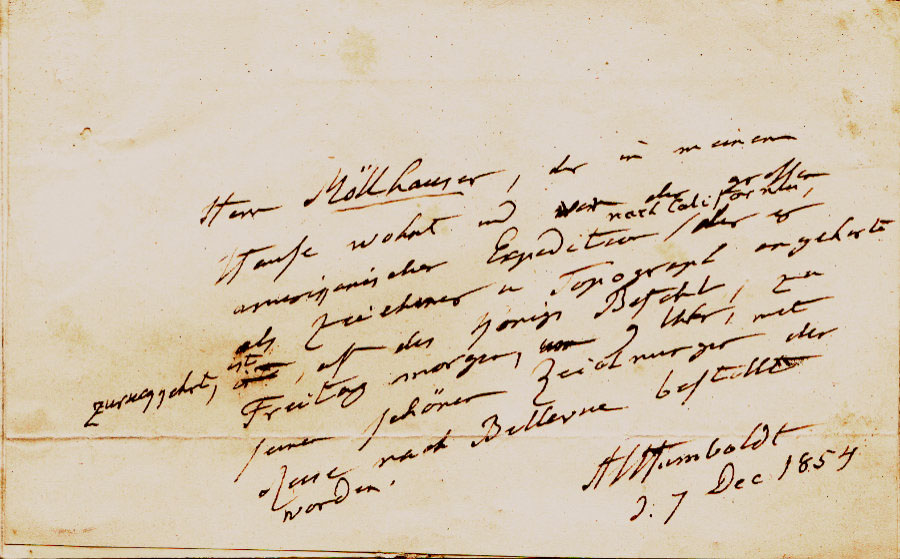 Herr Möllhauser, der in meinem
Hause wohnt und von der grossen
nach Californien,
amerikanischer Expedition / der er
als Zeichner u Topograph angehörte
zurükgekehrt, ist, auf des Königs Befehl, zu
Freitag morgen, um 9 Uhr, mit
seinen schönen Zeichnungen der
Reise nach Bellevue bestellt
worden.
AlHumboldt
d. 7 Dec 1854